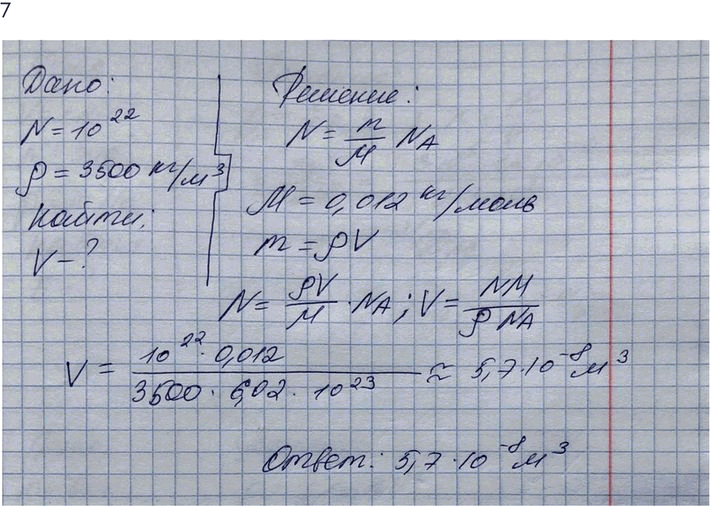 7
Дано:
N = 10²²
ρ = 3500 кг/м³
Найти:
V - ?
Решение:
N = m/M N_A
M = 0,012 кг/моль
m = ρV
N = ρV/M · N_A ; V = NM/ρ N_A
V = 10²² · 0,012 / 3500 · 6,02 · 10²³ ≈ 5,7 · 10⁻⁸ м³
Ответ: 5,7 · 10⁻⁸ м³